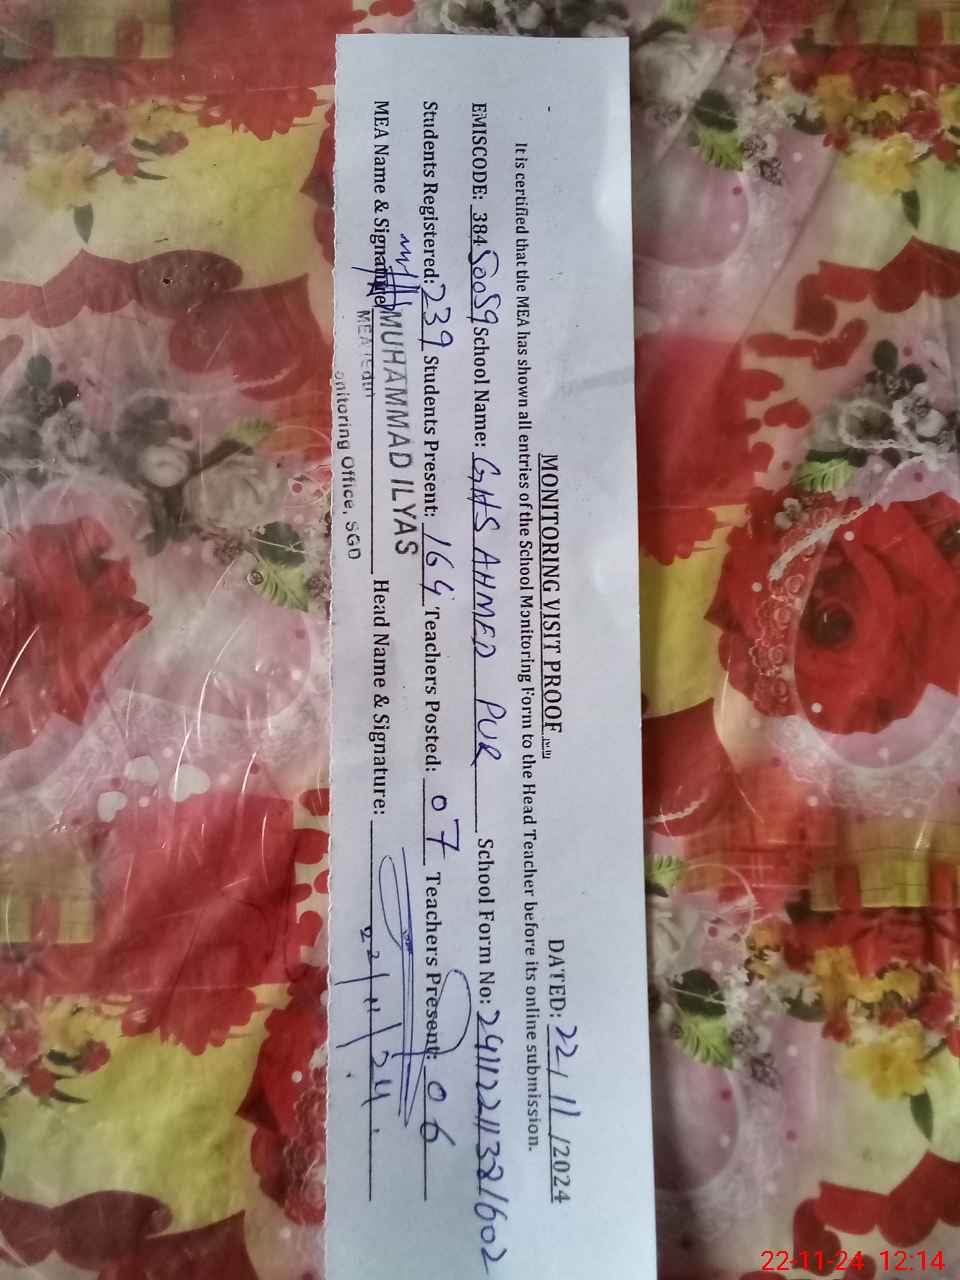 MONITORING VISIT PROOF
DATED: 22/11/2024
It is certified that the MEA has shown all entries of the School Monitoring Form to the Head Teacher before its online submission.
EMISCODE: 38450059 School Name: GHS AHMED PUR School Form No:
Students Registered: 239 Students Present: 164 Teachers Posted: 07 Teachers Present: 06
MEA Name & Signature MUHAMMAD ILYAS Head Name & Signature:
22/11/24
MEA
onitoring Office, SGD
22-11-24 12:14